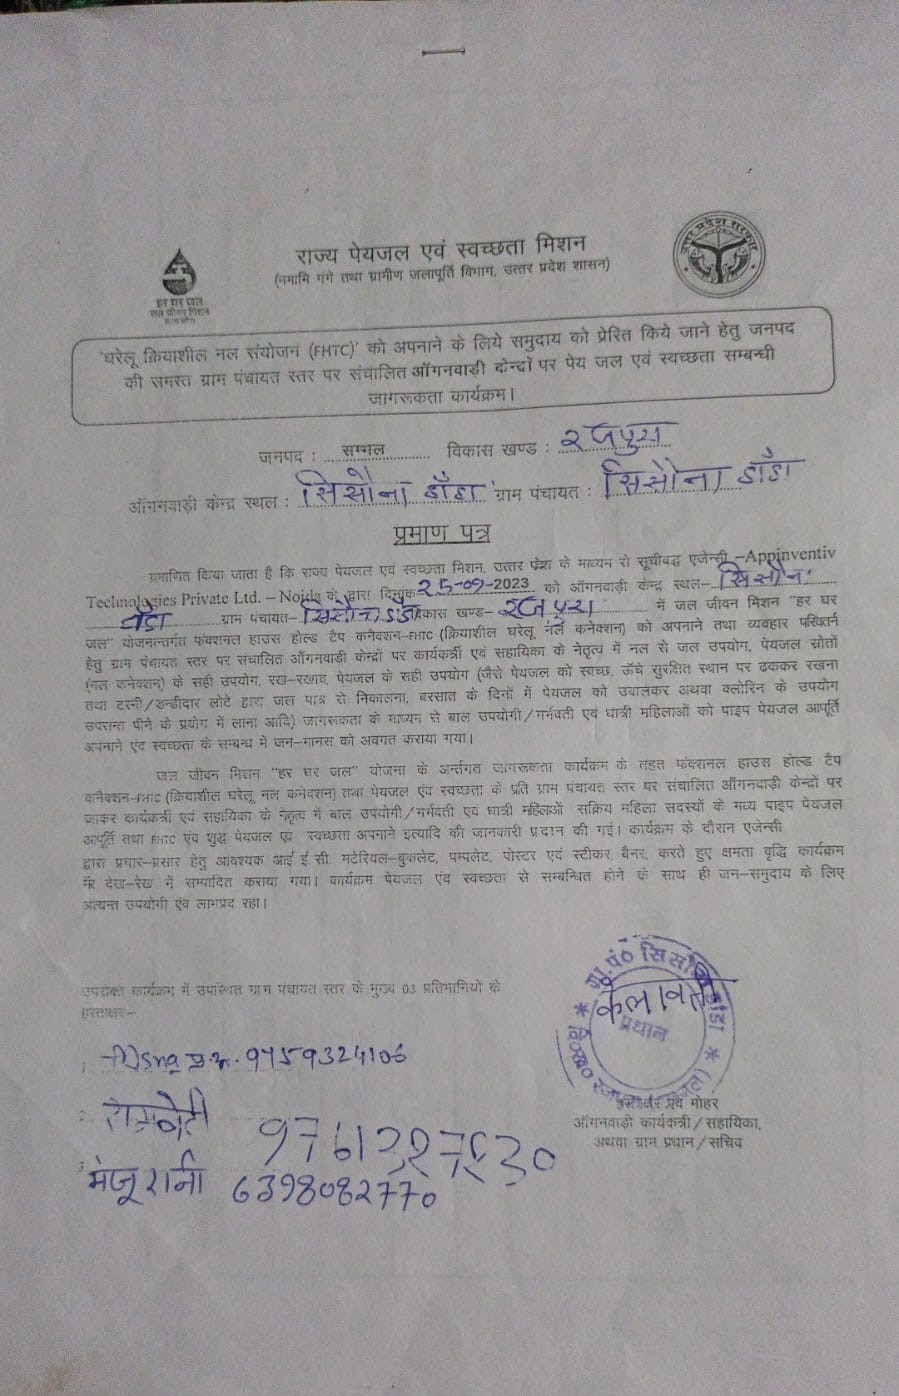 राज्य पेयजल एवं स्वच्छता मिशन
(नमामि गंगे तथा ग्रामीण जलापूर्ति विभाग, उत्तर प्रदेश शासन)
हर घर जल
जल जीवन मिशन
उत्तर प्रदेश सरकार
'घरेलू क्रियाशील नल संयोजन (FHTC)' को अपनाने के लिये समुदाय को प्रेरित किये जाने हेतु जनपद
की समस्त ग्राम पंचायत स्तर पर संचालित ऑगनवाड़ी केन्द्रों पर पेय जल एवं स्वच्छता सम्बन्धी
जागरूकता कार्यक्रम।
जनपद : सम्भल विकास खण्ड : रजपुरा
ऑगनवाड़ी केन्द्र स्थल : सिसौना डाँडा ग्राम पंचायत : सिसौना डाँडा
प्रमाण पत्र
प्रमाणित किया जाता है कि राज्य पेयजल एवं स्वच्छता मिशन, उत्तर प्रदेश के माध्यम से सूचीबद्ध एजेन्सी –Appinventiv
Technologies Private Ltd. – Noida के द्वारा दिनांक 25-09-2023 को ऑगनवाड़ी केन्द्र स्थल– सिसौना
ग्राम पंचायत– सिसौना डांडा विकास खण्ड– रजपुरा में जल जीवन मिशन "हर घर
जल" योजनान्तर्गत फंक्शनल हाउस होल्ड टैप कनेक्शन–FHTC (क्रियाशील घरेलू नल कनेक्शन) को अपनाने तथा व्यवहार परिवर्तन
हेतु ग्राम पंचायत स्तर पर संचालित ऑंगनवाड़ी केन्द्रों पर कार्यकर्त्री एवं सहायिका के नेतृत्व में नल से जल उपयोग, पेयजल स्रोतों
(नल कनेक्शन) के सही उपयोग, रख–रखाव, पेयजल के सही उपयोग (जैसे पेयजल को स्वच्छ, ऊँचे सुरक्षित स्थान पर ढककर रखना
तथा टस्नी/डन्डीदार लोटे द्वारा जल पात्र से निकालना, बरसात के दिनों में पेयजल को उबालकर अथवा क्लोरिन के उपयोग
उपरान्त पीने के प्रयोग में लाना आदि) जागरूकता के माध्यम से बाल उपयोगी/गर्भवती एवं धात्री महिलाओं को पाइप पेयजल आपूर्ति
अपनाने एंव स्वच्छता के सम्बन्ध में जन–मानस को अवगत कराया गया।
जल जीवन मिशन "हर घर जल" योजना के अर्न्तगत जागरूकता कार्यक्रम के तहत फंक्शनल हाउस होल्ड टैप
कनैक्शन–FHTC (क्रियाशील घरेलू नल कनेक्शन) तथा पेयजल एंव स्वच्छता के प्रति ग्राम पंचायत स्तर पर संचालित ऑंगनवाड़ी केन्द्रों पर
जाकर कार्यकर्त्री एवं सहायिका के नेतृत्व में बाल उपयोगी/गर्भवती एवं धात्री महिलाओं सक्रिय महिला सदस्यों के मध्य पाइप पेयजल
आपूर्ति तथा FHTC एंव शुद्ध पेयजल एवं स्वच्छता अपनाने इत्यादि की जानकारी प्रदान की गई। कार्यक्रम के दौरान एजेन्सी
द्वारा प्रचार–प्रसार हेतु आवश्यक आई.ई.सी. मटेरियल–बुकलेट, पम्पलेट, पोस्टर एवं स्टीकर, बैनर, करते हुए क्षमता वृद्धि कार्यक्रम
देख–रेख में सम्पादित कराया गया। कार्यक्रम पेयजल एंव स्वच्छता से सम्बन्धित होने के साथ ही जन–समुदाय के लिए
अत्यन्त उपयोगी एंव लाभप्रद रहा।
उपरोक्त कार्यक्रम में उपस्थित ग्राम पंचायत स्तर के मुख्य 03 प्रतिभागियों के
हस्ताक्षर–
कलावती
प्रधान
9759324106
रामबेटी
मंजू रानी 6398082770
हस्ताक्षर एवं मोहर
ऑगनवाड़ी कार्यकत्री/सहायिका,
अथवा ग्राम प्रधान/सचिव